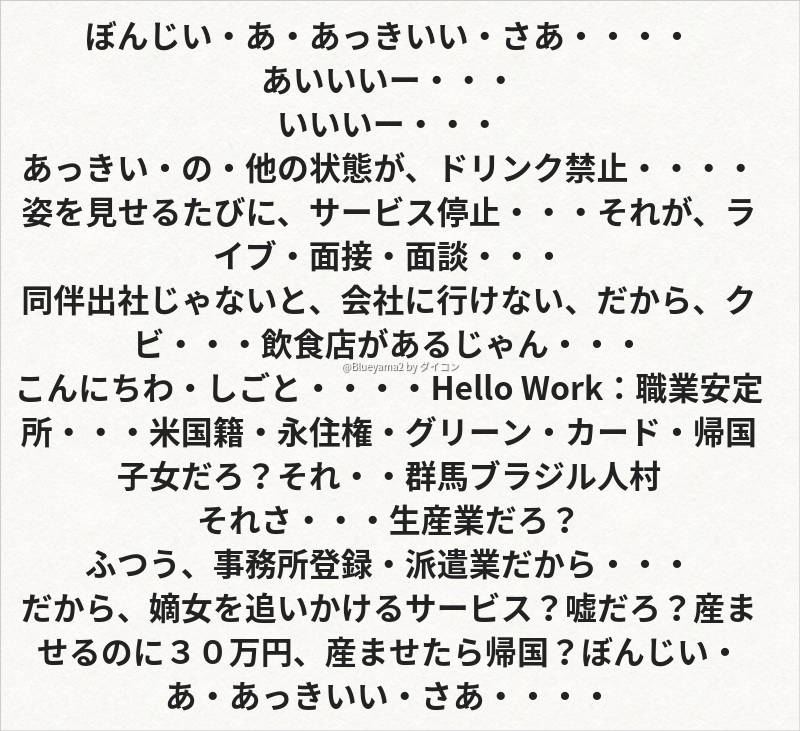 ぼんじい・あ・あっきいい・さあ・・・・
あいいいー・・・
いいいー・・・
あっきい・の・他の状態が、ドリンク禁止・・・・
姿を見せるたびに、サービス停止・・・それが、ラ
イブ・面接・面談・・・
同伴出社じゃないと、会社に行けない、だから、ク
ビ・・・飲食店があるじゃん・・・
@Blueyama2 by ダイコン
こんにちわ・しごと・・・・Hello Work：職業安定
所・・・米国籍・永住権・グリーン・カード・帰国
子女だろ？それ・・群馬ブラジル人村
それさ・・・生産業だろ？
ふつう、事務所登録・派遣業だから・・・
だから、嫡女を追いかけるサービス？嘘だろ？産ま
せるのに３０万円、産ませたら帰国？ぼんじい・
あ・あっきいい・さあ・・・・